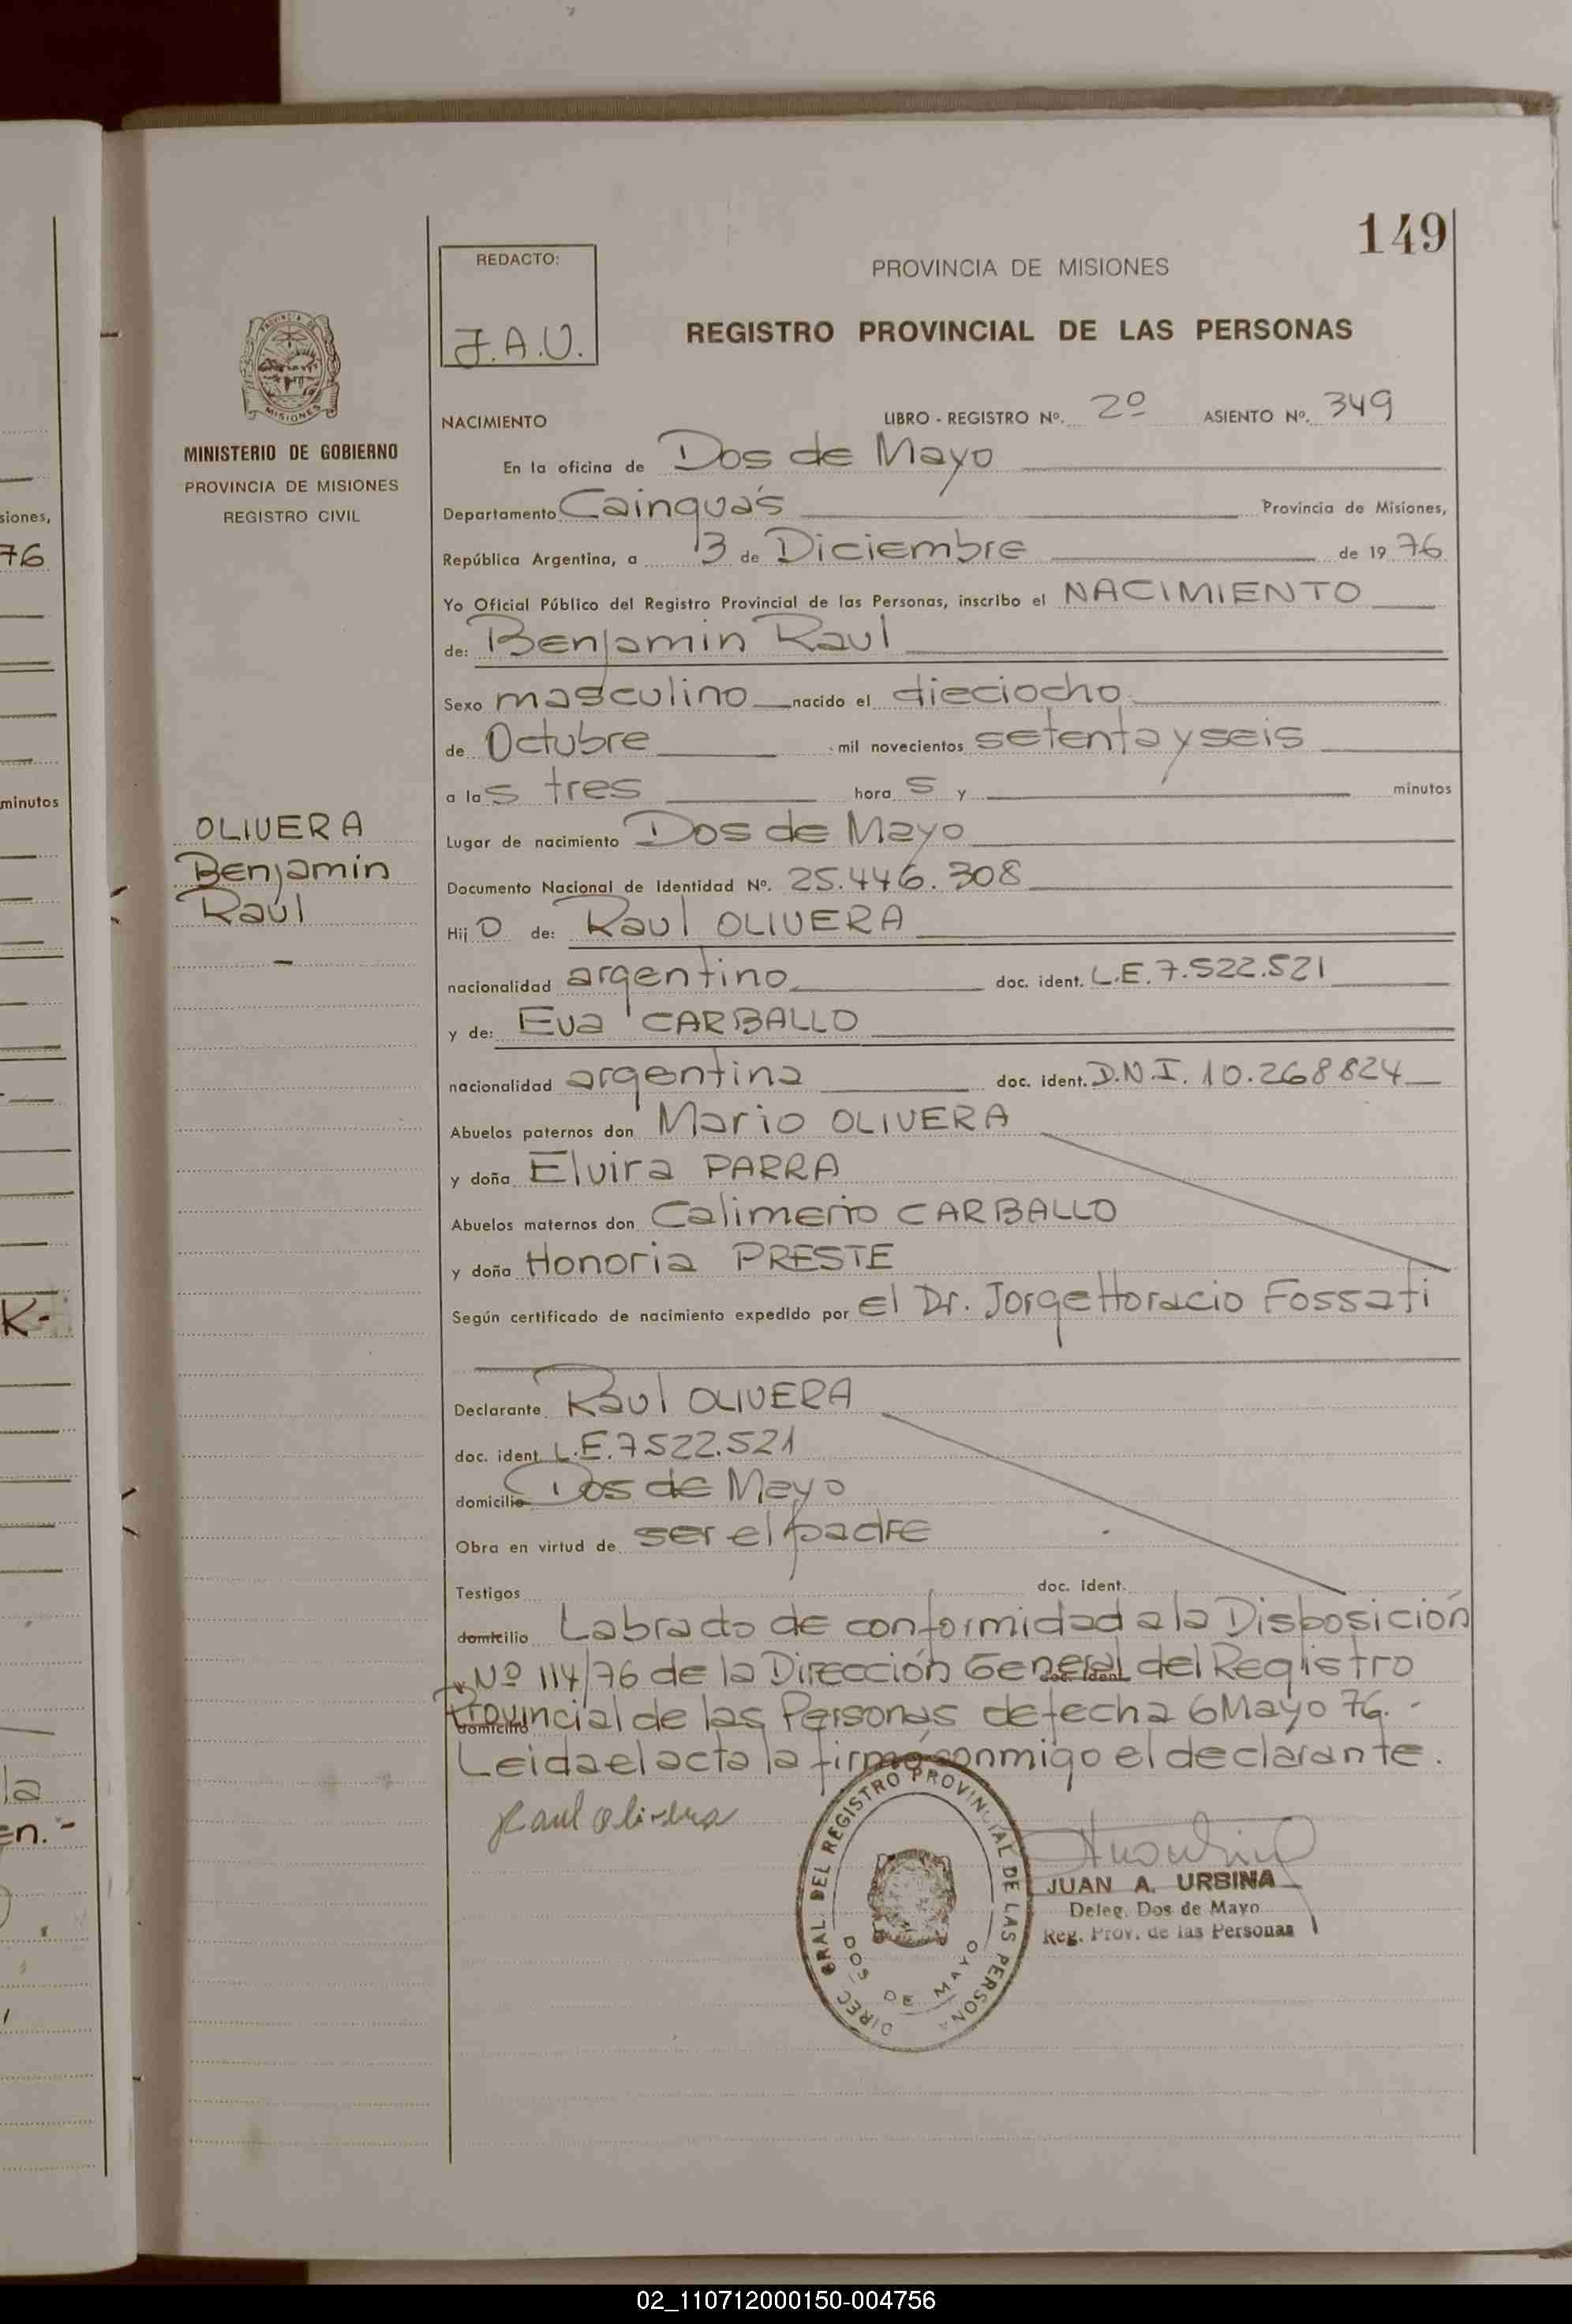 149
REDACTO:
J.A.U.
PROVINCIA DE MISIONES
REGISTRO PROVINCIAL DE LAS PERSONAS
PROVINCIA DE
MISIONES
MINISTERIO DE GOBIERNO
PROVINCIA DE MISIONES
REGISTRO CIVIL
NACIMIENTO LIBRO - REGISTRO Nº. 2º ASIENTO Nº. 349
En la oficina de Dos de Mayo
Departamento Cainguás Provincia de Misiones,
República Argentina, a 13 de Diciembre de 1976
Yo Oficial Público del Registro Provincial de las Personas, inscribo el NACIMIENTO
de: Benjamin Raul
Sexo masculino nacido el dieciocho
de Octubre mil novecientos setenta y seis
a las tres horas y minutos
Lugar de nacimiento Dos de Mayo
Documento Nacional de Identidad Nº. 25.446.308
OLIVERA
Benjamin
Raúl
-
Hijo de: Raul OLIVERA
nacionalidad argentino doc. ident. L.E. 7.522.521
y de: Eva CARBALLO
nacionalidad argentina doc. ident. D.N.I. 10.268824
Abuelos paternos don Mario OLIVERA
y doña Elvira PARRA
Abuelos maternos don Calimerio CARBALLO
y doña Honoria PRESTE
Según certificado de nacimiento expedido por el Dr. Jorge Horacio Fossati
Declarante Raul OLIVERA
doc. ident. L.E. 7.522.521
domicilio Dos de Mayo
Obra en virtud de ser el padre
Testigos doc. ident.
domicilio Labrado de conformidad a la Disposición
y Nº 114/76 de la Dirección General doc. ident. del Registro
domicilio Provincial de las Personas de fecha 6 Mayo 76. -
Leida el acta la firmó conmigo el declarante.
Raul Olivera
DIREC. GRAL. DEL REGISTRO PROVINCIAL DE LAS PERSONA
DOS DE MAYO
JUAN A. URBINA
Deleg. Dos de Mayo
Reg. Prov. de las Personas
siones,
76
minutos
K-
la
en.-
02_110712000150-004756